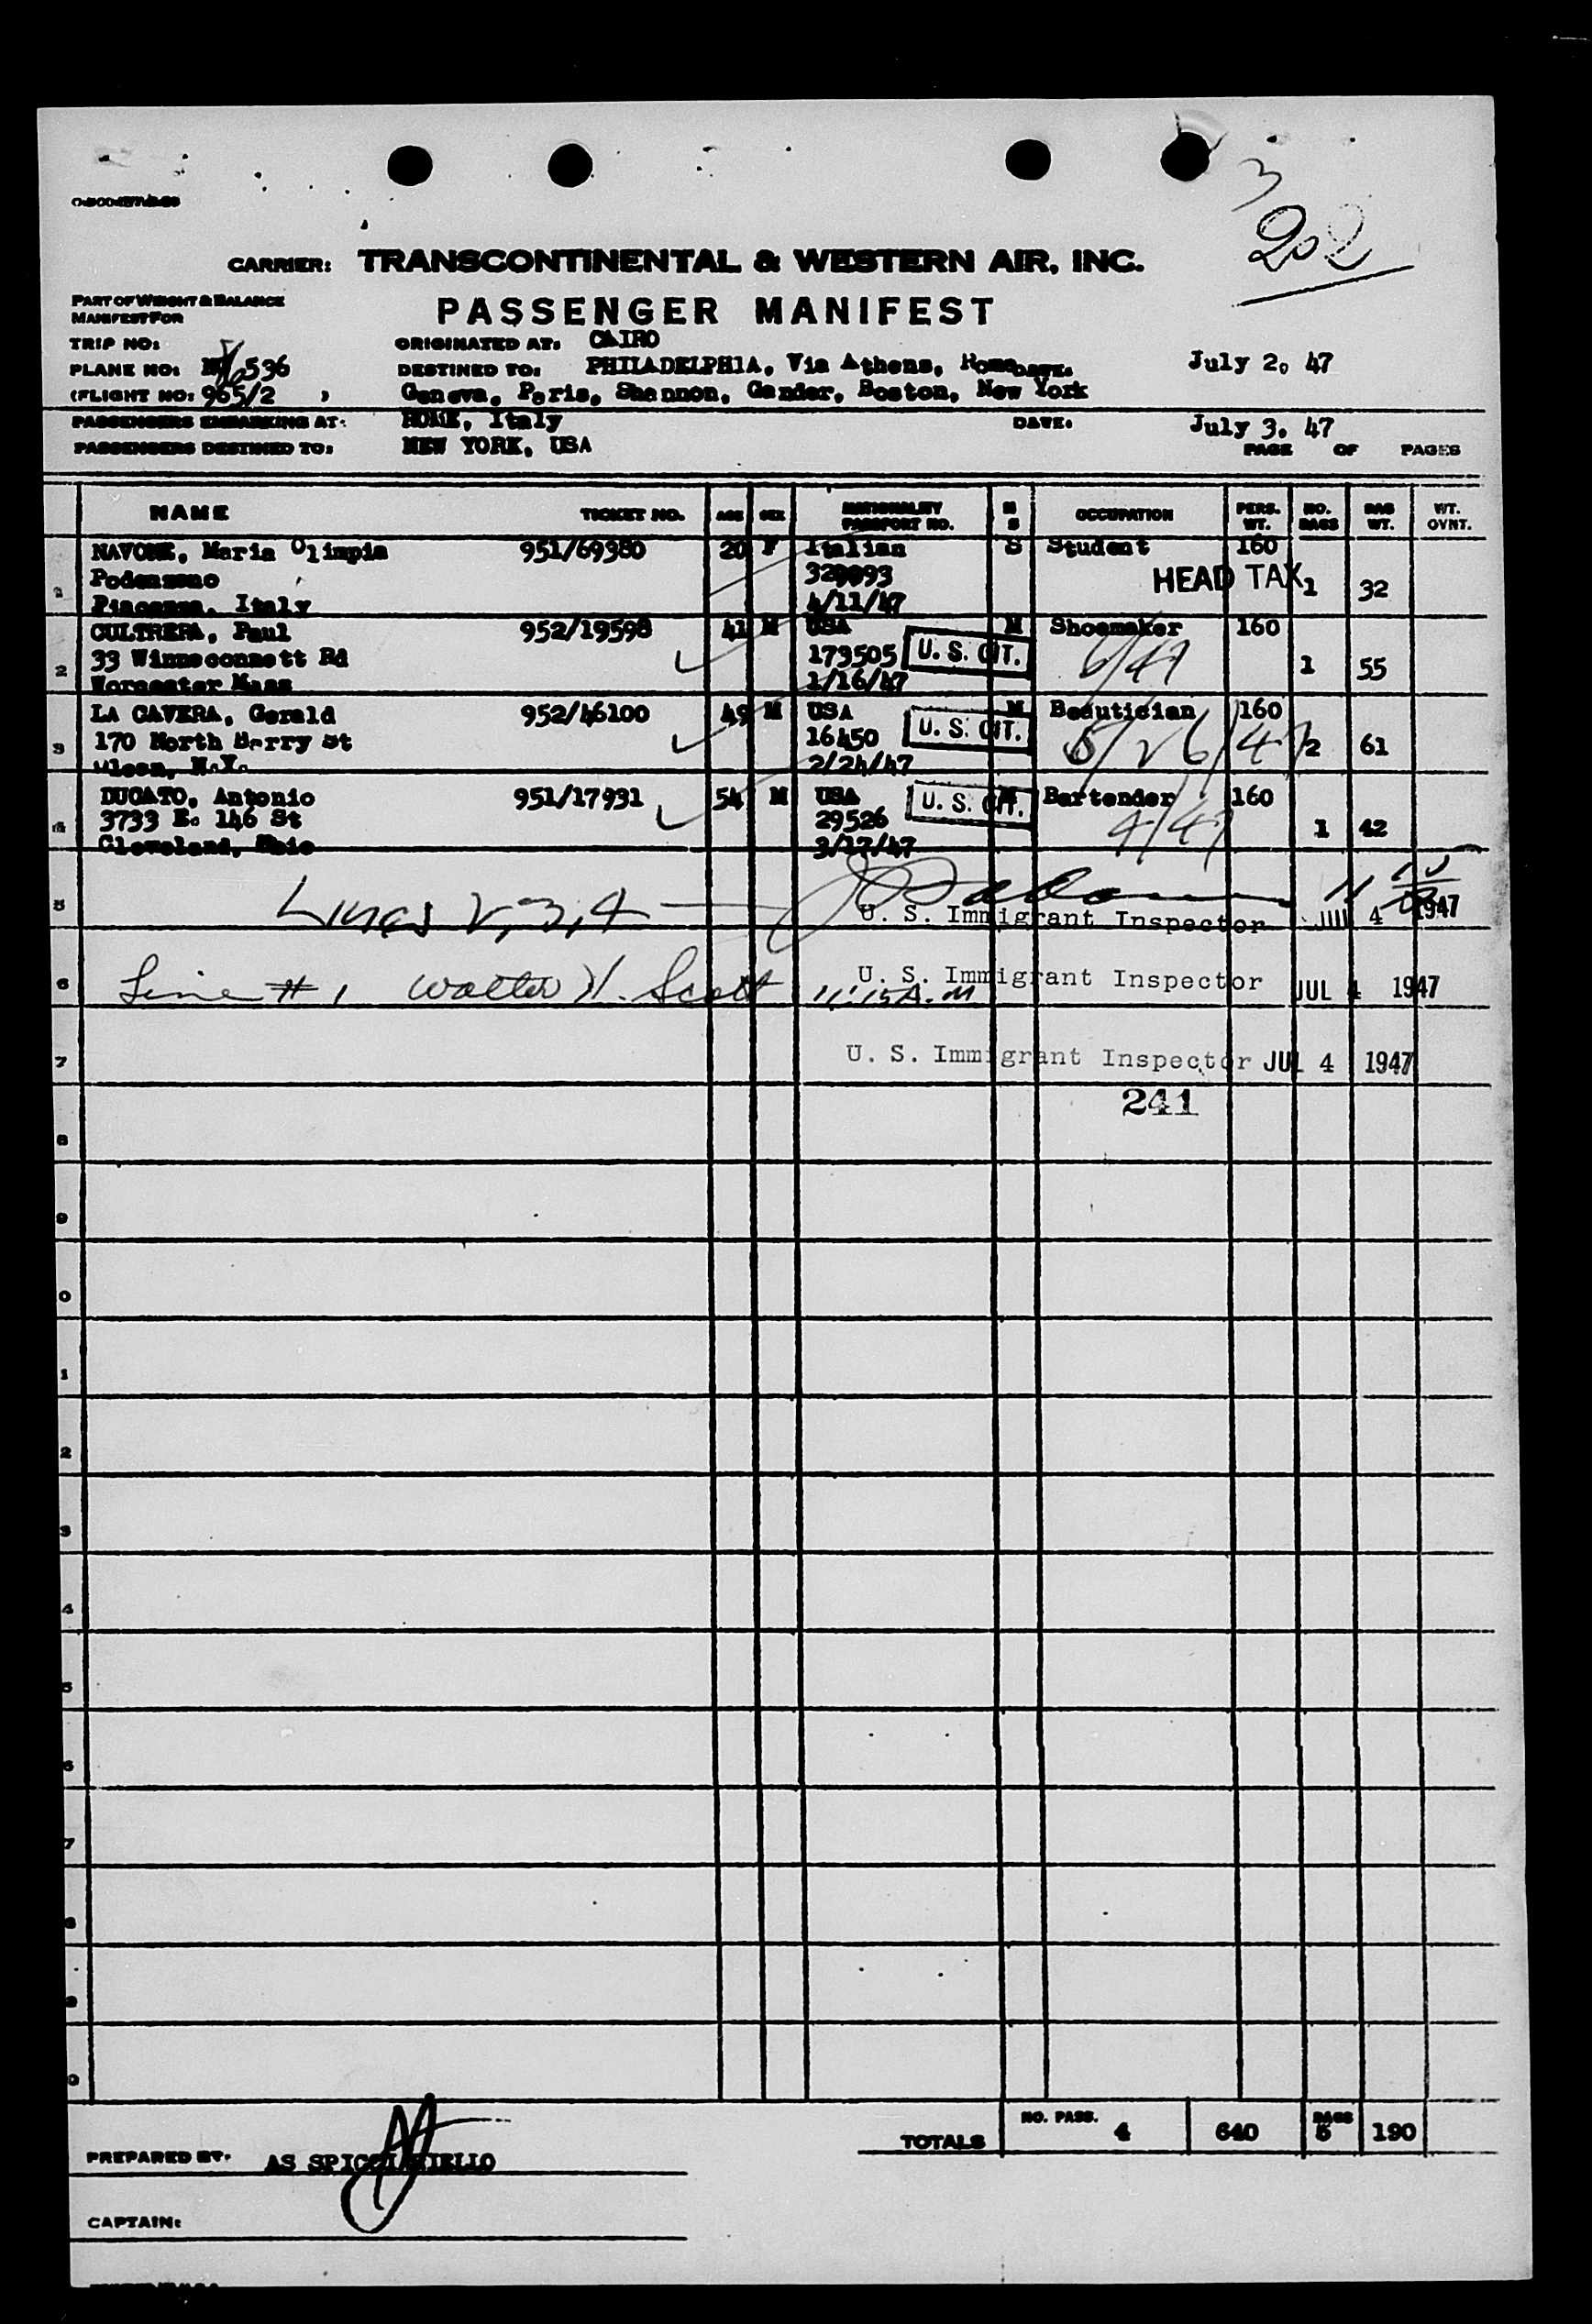 3
202
CARRIER: TRANSCONTINENTAL & WESTERN AIR, INC.
PART OF WEIGHT & BALANCE
MANIFEST FOR
PASSENGER MANIFEST
TRIP NO:
ORIGINATED AT: CAIRO
PLANE NO: 536
DESTINED TO: PHILADELPHIA, Via Athens, Rome DATE. July 2. 47
(FLIGHT NO: 965/2 )
Geneva, Paris, Shannon, Gander, Boston, New York
PASSENGERS EMBARKING AT: ROME, Italy DATE. July 3. 47
PASSENGERS DESTINED TO: NEW YORK, USA PAGE OF PAGES
NAME TICKET NO. AGE SEX NATIONALITY PASSPORT NO. M S OCCUPATION PERS. WT. NO. BAGS BAG WT. WT. OVNT.
NAVONE, Maria Olimpia 951/69380 20 F Italian S Student 160
Podenzano HEAD TAX 1 32
Piacenza, Italy 4/11/47
CULTRERA, Paul 952/19598 41 M USA M Shoemaker 160
2 33 Winneconnett Rd 173505 U. S. CIT. 1 55
Worcester Mass 1/16/47
LA CAVERA, Gerald 952/46100 49 M USA M Beautician 160
3 170 North Barry St 16450 U. S. CIT. 5/26/47 2 61
Olean, N.Y. 2/24/47
DUCATO, Antonio 951/17931 54 M USA U. S. CIT. Bartender 160
3733 E. 146 St 29526 4/47 1 42
Cleveland, Ohio 3/17/47
5 Lines 2, 3, 4
U. S. Immigrant Inspector 4 1947
6 Line # 1 Walter H. Scott 11:15 A.M U. S. Immigrant Inspector JUL 4 1947
7 U. S. Immigrant Inspector JUL 4 1947
241
8
9
0
1
2
3
4
5
6
7
8
9
0
TOTALS NO. PASS. 4 640 BAGS 5 190
PREPARED BY. AS
CAPTAIN: